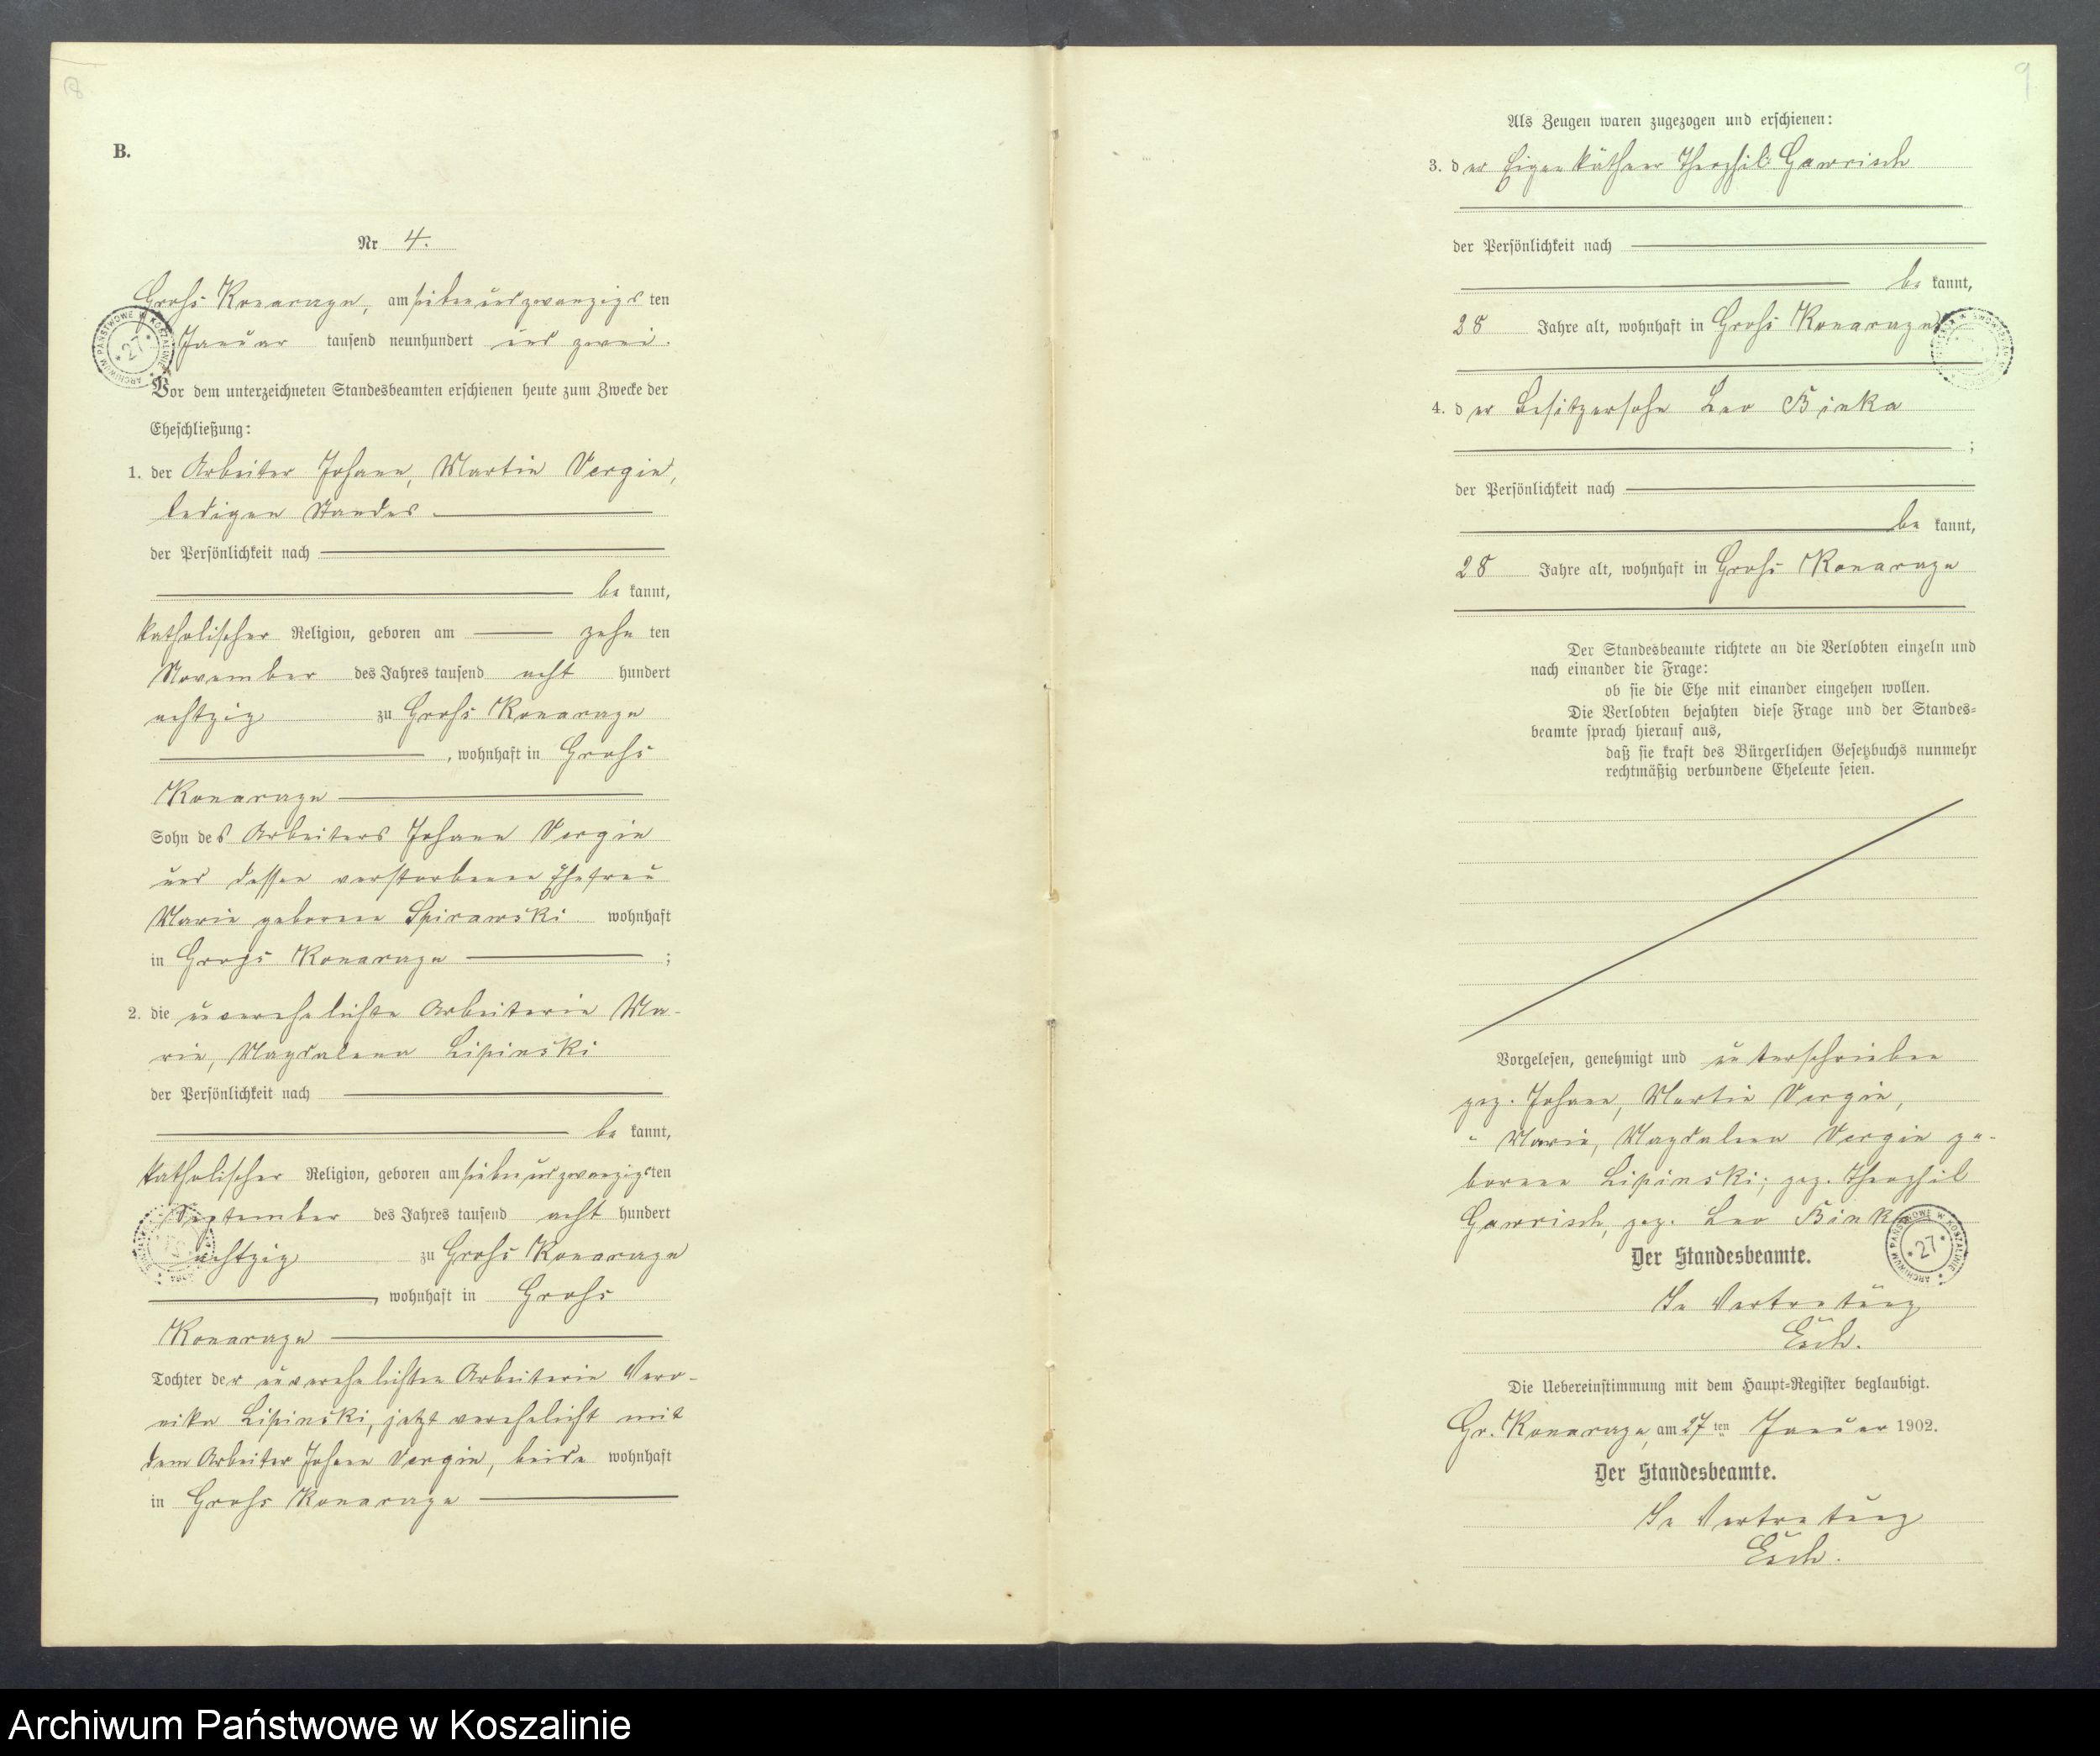 B.
Nr 4.
Groß Konarczyn, am siebenundzwanzigs ten
Januar tausend neunhundert und zwei.
Vor dem unterzeichneten Standesbeamten erschienen heute zum Zwecke der
Eheschließung:
1. der Arbeiter Johann, Martin Vergin,
ledigen Standes
der Persönlichkeit nach
be kannt,
katholischer Religion, geboren am zehn ten
November des Jahres tausend acht hundert
achtzig zu Groß
, wohnhaft in Groß
Sohn des Arbeiters Johann Vergin
und dessen verstorbenen Ehefrau
Marie geborene Spirawski wohnhaft
in Groß
;
2. die unverehelichte Arbeiterin Ma-
rie, Magdalena Lipinski
der Persönlichkeit nach
be kannt,
katholischer Religion, geboren am siebenundzwanzigsten
September des Jahres tausend acht hundert
achtzig zu Groß
, wohnhaft in Groß
Tochter der unverehelichten Arbeiterin Vero-
nika Lipinski, jetzt verehelicht mit
dem Arbeiter Johann Vergin, beide wohnhaft
in Groß
9
Als Zeugen waren zugezogen und erschienen:
3. der Eigenkäthner Theophil Gawrisch
der Persönlichkeit nach
be kannt,
28 Jahre alt, wohnhaft in Groß
4. der Besitzersohn Leo Binka
;
der Persönlichkeit nach
be kannt,
28 Jahre alt, wohnhaft in Groß
Der Standesbeamte richtete an die Verlobten einzeln und
nach einander die Frage:
ob sie die Ehe mit einander eingehen wollen.
Die Verlobten bejahten diese Frage und der Standes-
beamte sprach hierauf aus,
daß sie kraft des Bürgerlichen Gesetzbuchs nunmehr
rechtmäßig verbundene Eheleute seien.
Vorgelesen, genehmigt und unterschrieben
gez. Johann, Martin Vergin,
" Marie, Magdalena Vergin ge-
borene Lipinski; gez. Theophil
Gawrisch, gez. Leo Binka
Der Standesbeamte.
In Vertretung
Esch.
Die Uebereinstimmung mit dem Haupt-Register beglaubigt.
Gr. am 27 ten Januar 1902.
Der Standesbeamte.
In Vertretung
Esch.
ARCHIWUM PAŃSTWOWE W KOSZALINIE
27
Archiwum Państwowe w Koszalinie